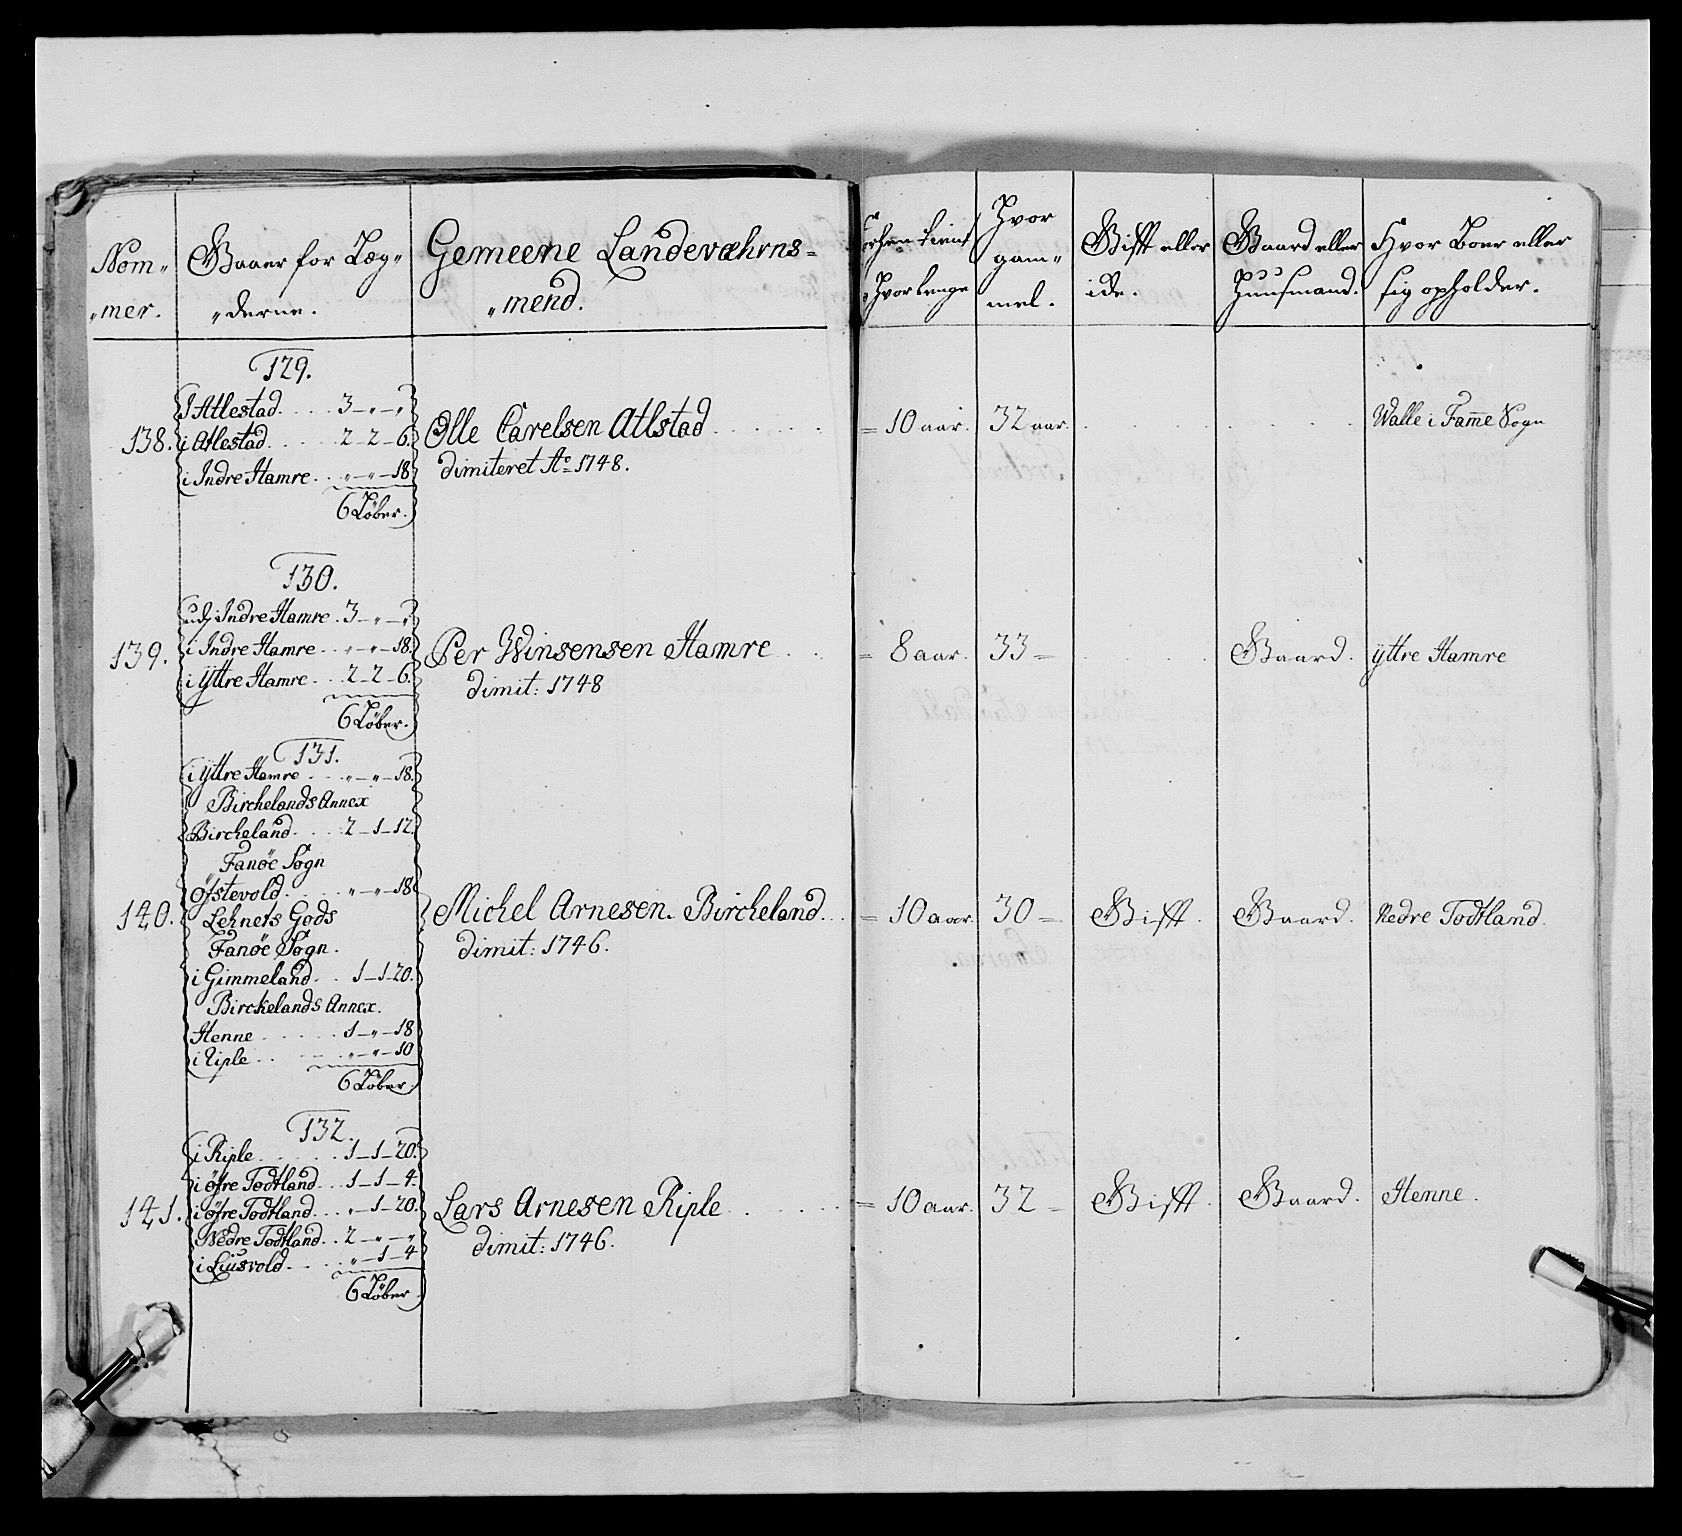 Nom„
„mer.
Gaaer for Læg„
„derne.
Gemeene Landeværns=
„mend.
Hvorlenge
Hvor
gam„
mel.
Gifft eller
ide.
Gaard eller
Huusmand.
Hvor Boer eller
sig opholder.
129.
I Atlestad. . . . . 3 — „ — „
138. i Atlestad. . . . . 2 — 2 — 6. Olle Carelsen Atlstad . . . . . . = 10 aar. 32 aar. Walle i Fame Sogn
i Indre Hamre . . „ — „ — 18 dimiteret Ao 1748.
6 Løber.
130.
udj Indre Hamre . 3 — „ — „
139. i Indre Hamre . . „ — „ — 18. Per Winsensen Hamre . . . = 8 aar. 33 — Gaard. ÿttre Hamre
i ÿttre Hamre . . 2 — 2 — 6. dimit: 1748
6 Løber.
131.
i ÿttre Hamre . . . „ — „ — 18.
Birchelands Annex
Bircheland. . . . . 2 — 1 — 12.
Fanöe Sogn
Ofstevold. . . . . „ — „ — 18
140. Lehnets Gods Michel Arnesen. Bircheland. . . = 10 aar. 30 — Gifft. Gaard. Nedre Todtland.
Fanöe Sogn. dimit: 1746.
i Gimmeland. . . 1 — 1 — 20.
Birckelands Annex.
Henne . . . . . . 1 — „ — 18
i Riple . . . . . . „ — „ — 10
6 Løber.
132.
i Riple . . . . . 1 — 1 — 20.
i öfre Todtland. . . 1 — 1 — 4.
141. i öfre Todtland. . . „ — 1 — 20. Lars Arnesen Riple . . . . . . = 10 aar. 32 — Gifft. Gaard. Henne.
Nedre Todtland. . 2 — „ — „ dimit: 1746.
i Liusvold. . . . . „ — 1 — 4
6 Løber.